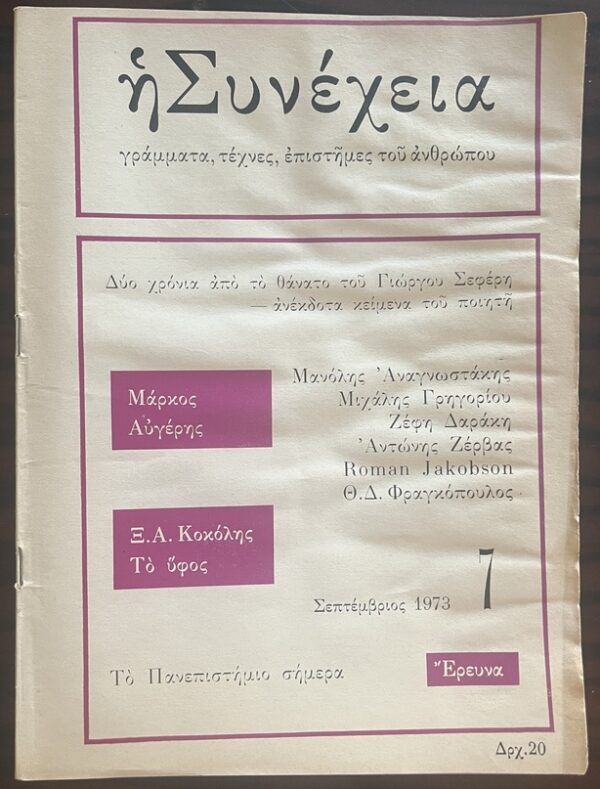 ἡ Συνέχεια
γράμματα, τέχνες, ἐπιστῆμες τοῦ ἀνθρώπου
Δύο χρόνια ἀπὸ τὸ θάνατο τοῦ Γιώργου Σεφέρη
— ἀνέκδοτα κείμενα τοῦ ποιητῆ
Μάρκος
Αὐγέρης
Μανόλης Ἀναγνωστάκης
Μιχάλης Γρηγορίου
Ζέφη Δαράκη
Ἀντώνης Ζέρβας
Roman Jakobson
Θ.Δ. Φραγκόπουλος
Ξ.Α. Κοκόλης
Τὸ ὕφος
Σεπτέμβριος 1973 7
Τὸ Πανεπιστήμιο σήμερα
Ἔρευνα
Δρχ.20